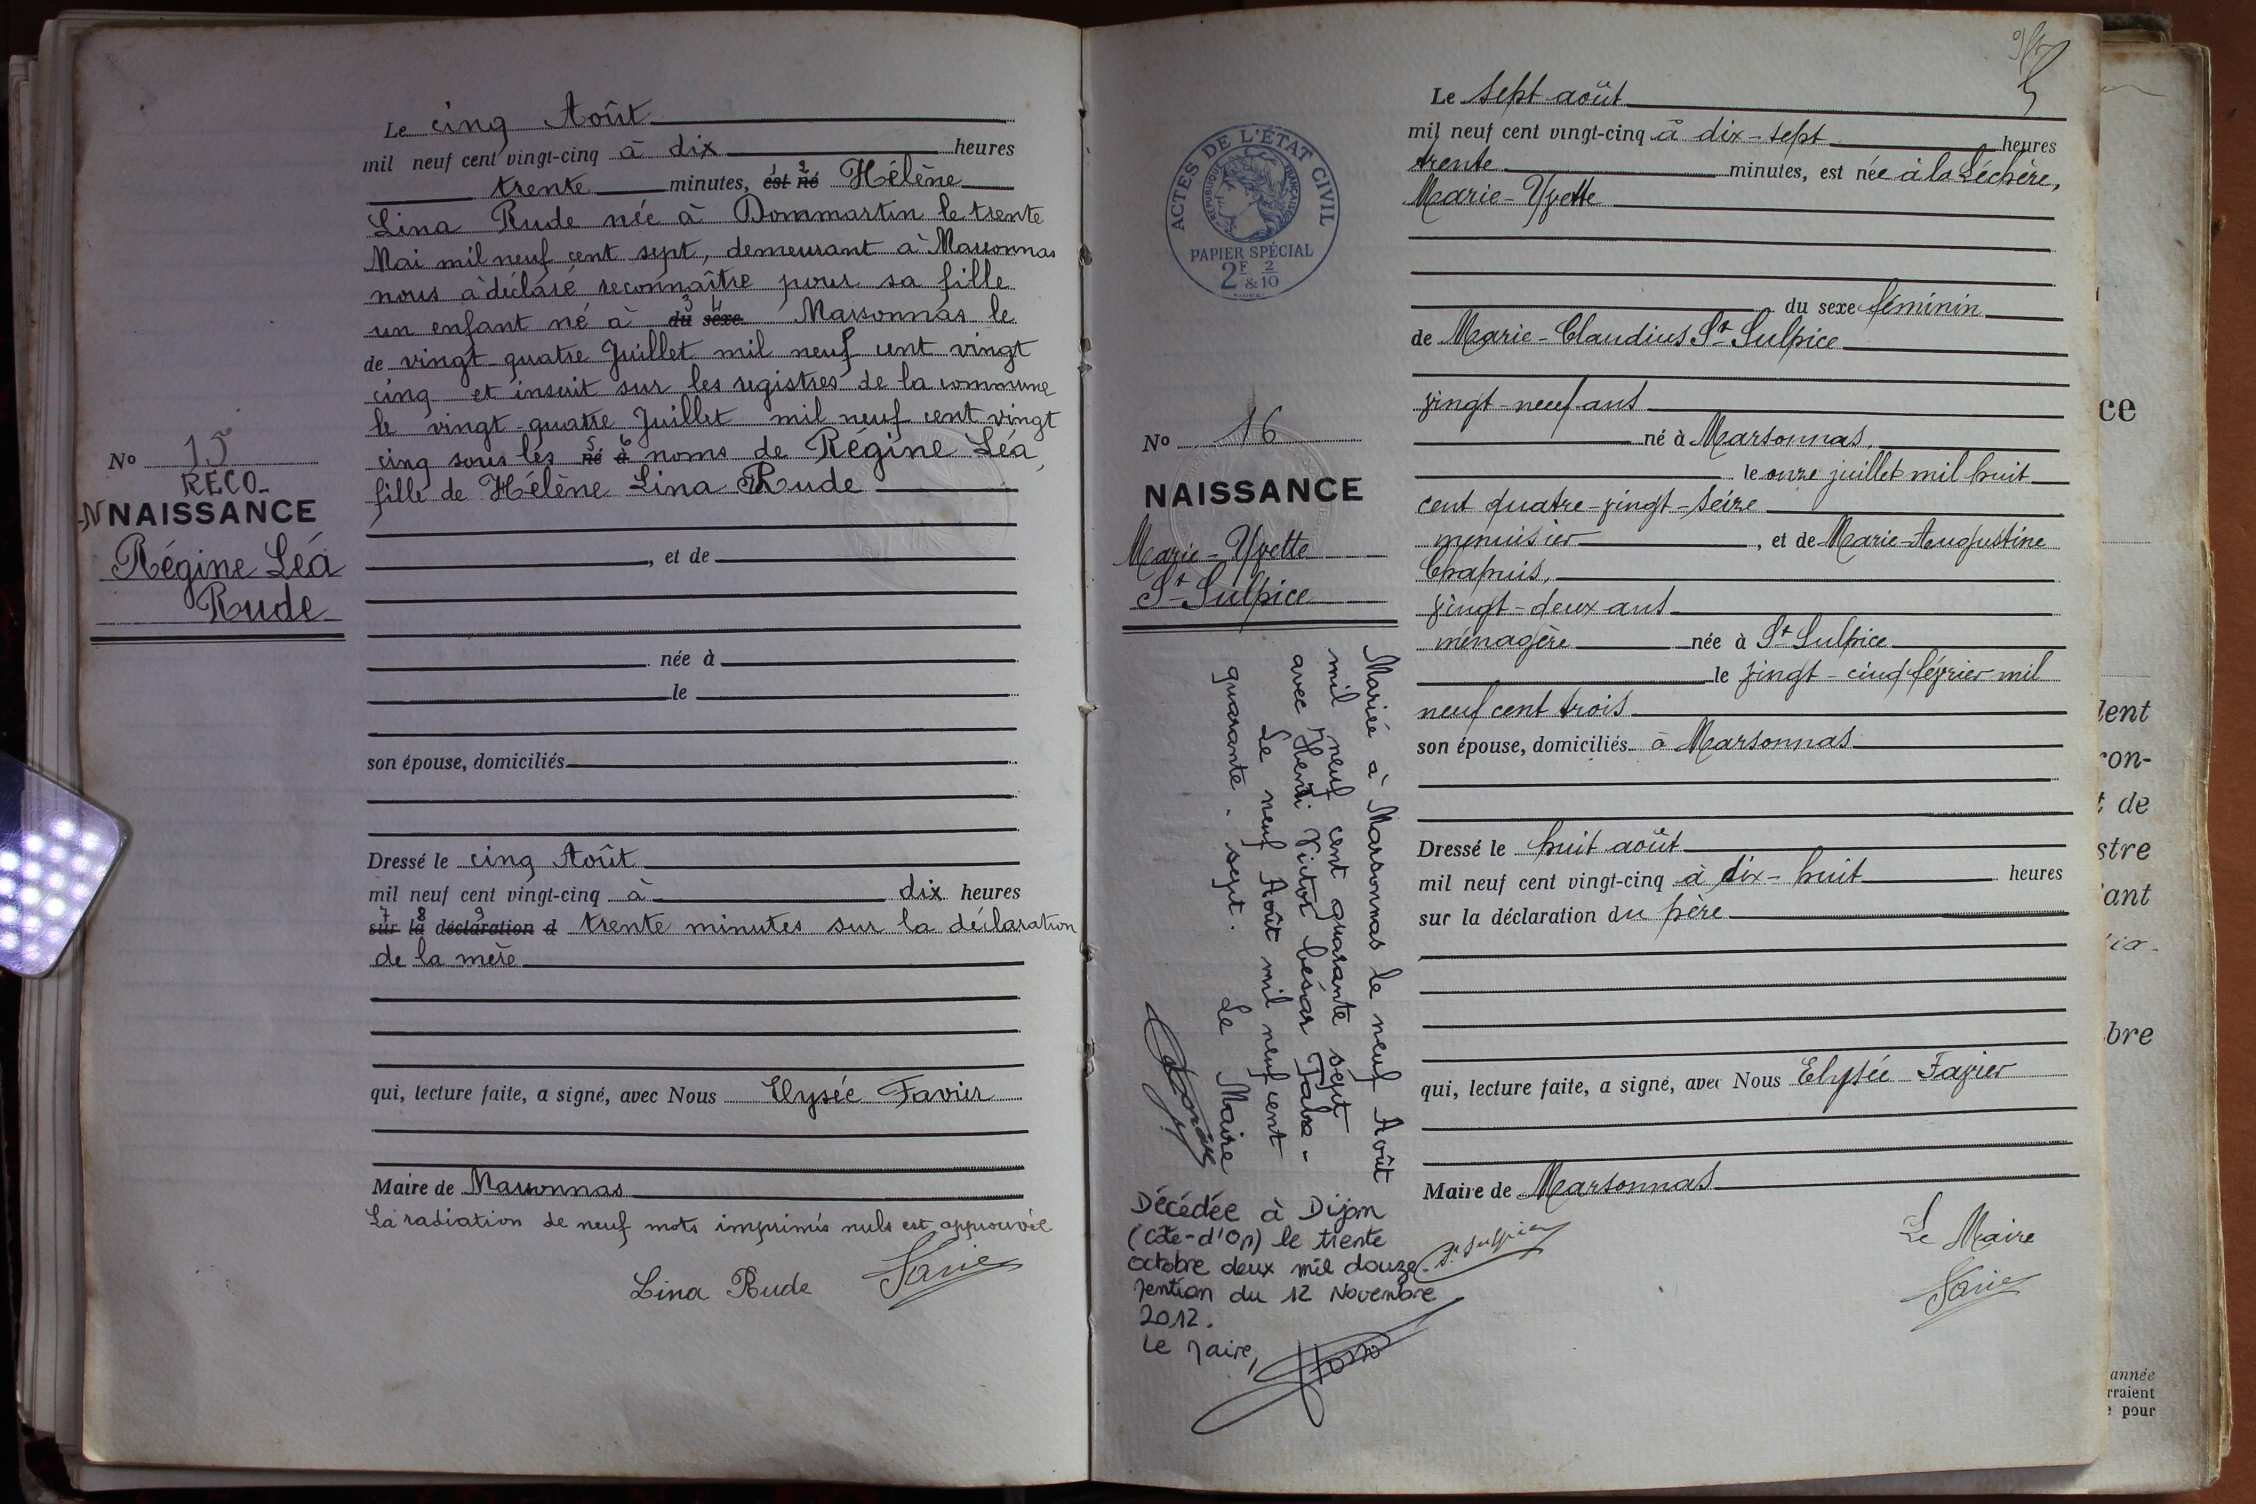 Le cinq Août
mil neuf cent vingt-cinq à dix heures
trente minutes, est né Hélène
Lina Rude née à Dommartin le trente
Mai mil neuf cent sept, demeurant à Marsonnas
nous a déclaré reconnaître pour sa fille
un enfant né à du sexe Marsonnas le
de vingt quatre Juillet mil neuf cent vingt
cinq et inscrit sur les registres de la commune
le vingt-quatre Juillet mil neuf cent vingt
cinq sous les né à noms de Régine Léa,
fille de Hélène Lina Rude
No 15
RECO-
-N NAISSANCE
Régine Léa
Rude
, et de
née à
le
son épouse, domiciliés
Dressé le cinq Août
mil neuf cent vingt-cinq à dix heures
sur la déclaration d trente minutes sur la déclaration
de la mère
qui, lecture faite, a signé, avec Nous Elysée Favier
Maire de Marsonnas
La radiation de neuf mots imprimés nuls est approuvée
Lina Rude Favier
Le sept août
mil neuf cent vingt-cinq à dix-sept heures
trente minutes, est née à la Léchère,
Marie-Yvette
du sexe féminin
de Marie-Claudius St Sulpice
vingt-neuf ans
né à Marsonnas,
le onze juillet mil huit
cent quatre-vingt-seize
menuisier, et de Marie-Augustine
Chapuis,
vingt-deux ans
ménagère née à St Sulpice
le vingt-cinq février mil
neuf cent trois
son épouse, domiciliés à Marsonnas
Dressé le huit août
mil neuf cent vingt-cinq à dix-huit heures
sur la déclaration du père
qui, lecture faite, a signé, avec Nous Elysée Favier
Maire de Marsonnas
St Sulpice
Le Maire
Favier
ACTES DE L'ÉTAT CIVIL
RÉPUBLIQUE FRANÇAISE
PAPIER SPÉCIAL
2F & 2/10
No 16
NAISSANCE
Marie-Yvette
St Sulpice
Mariée à Marsonnas le neuf Août
mil neuf cent quarante sept
avec Henri Victor César
Le neuf Août mil neuf cent
quarante-sept. Le Maire
Décédée à Dijon
(Côte-d'Or) le trente
octobre deux mil douze.
Mention du 12 Novembre
2012.
Le Maire,
ce
dent
ron-
t de
stre
ant
bre
année
rraient
pour